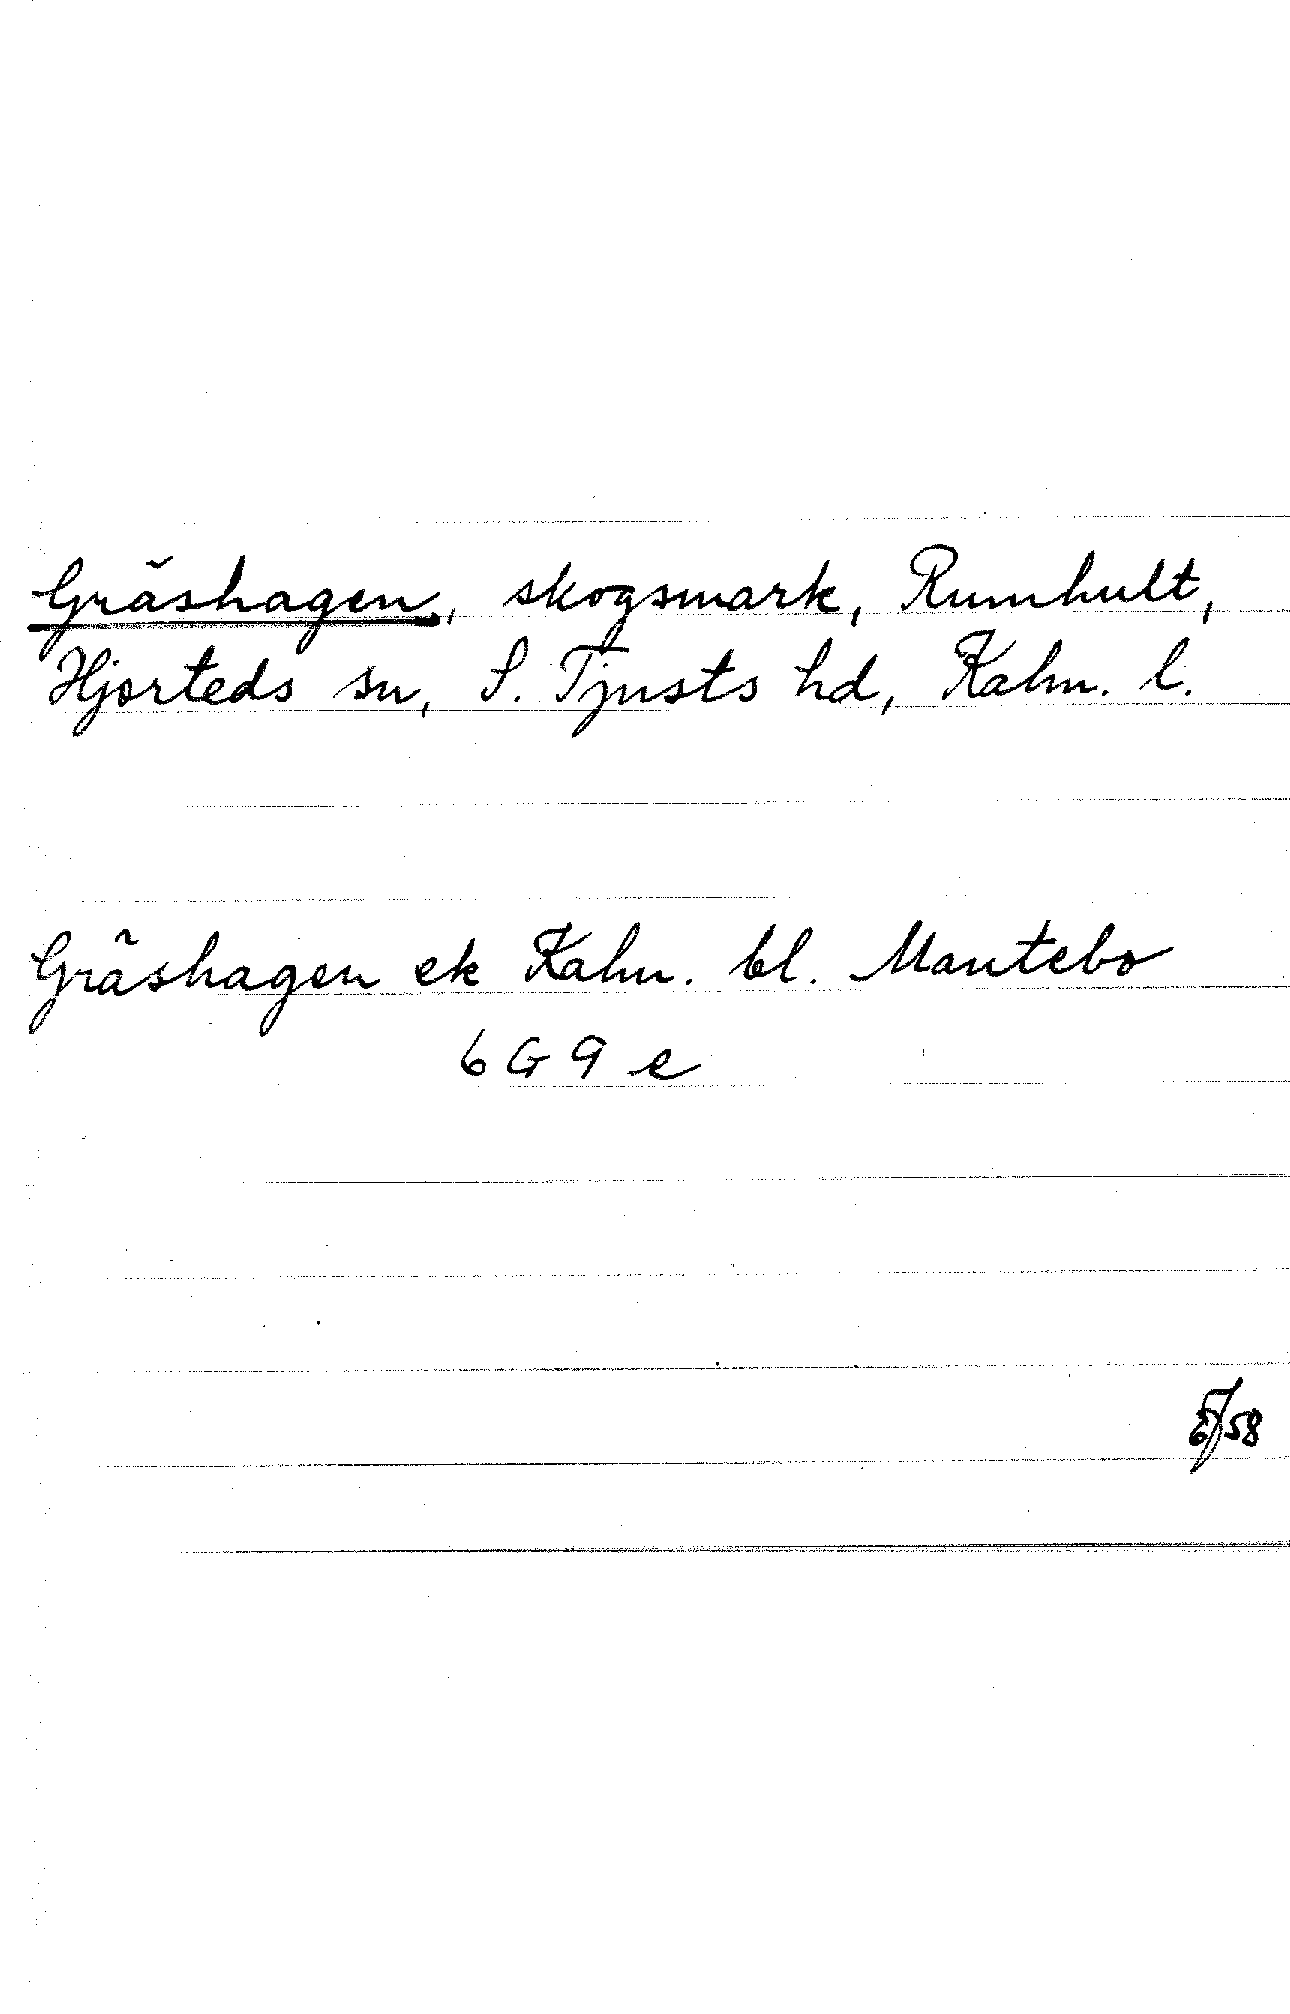 Gräshagen, skogsmark, Rumhult,
Hjorteds sn, S. Tjusts hd, Kalm. l.
Gräshagen ek Kalm. bl. Mantebo
6 G 9 e